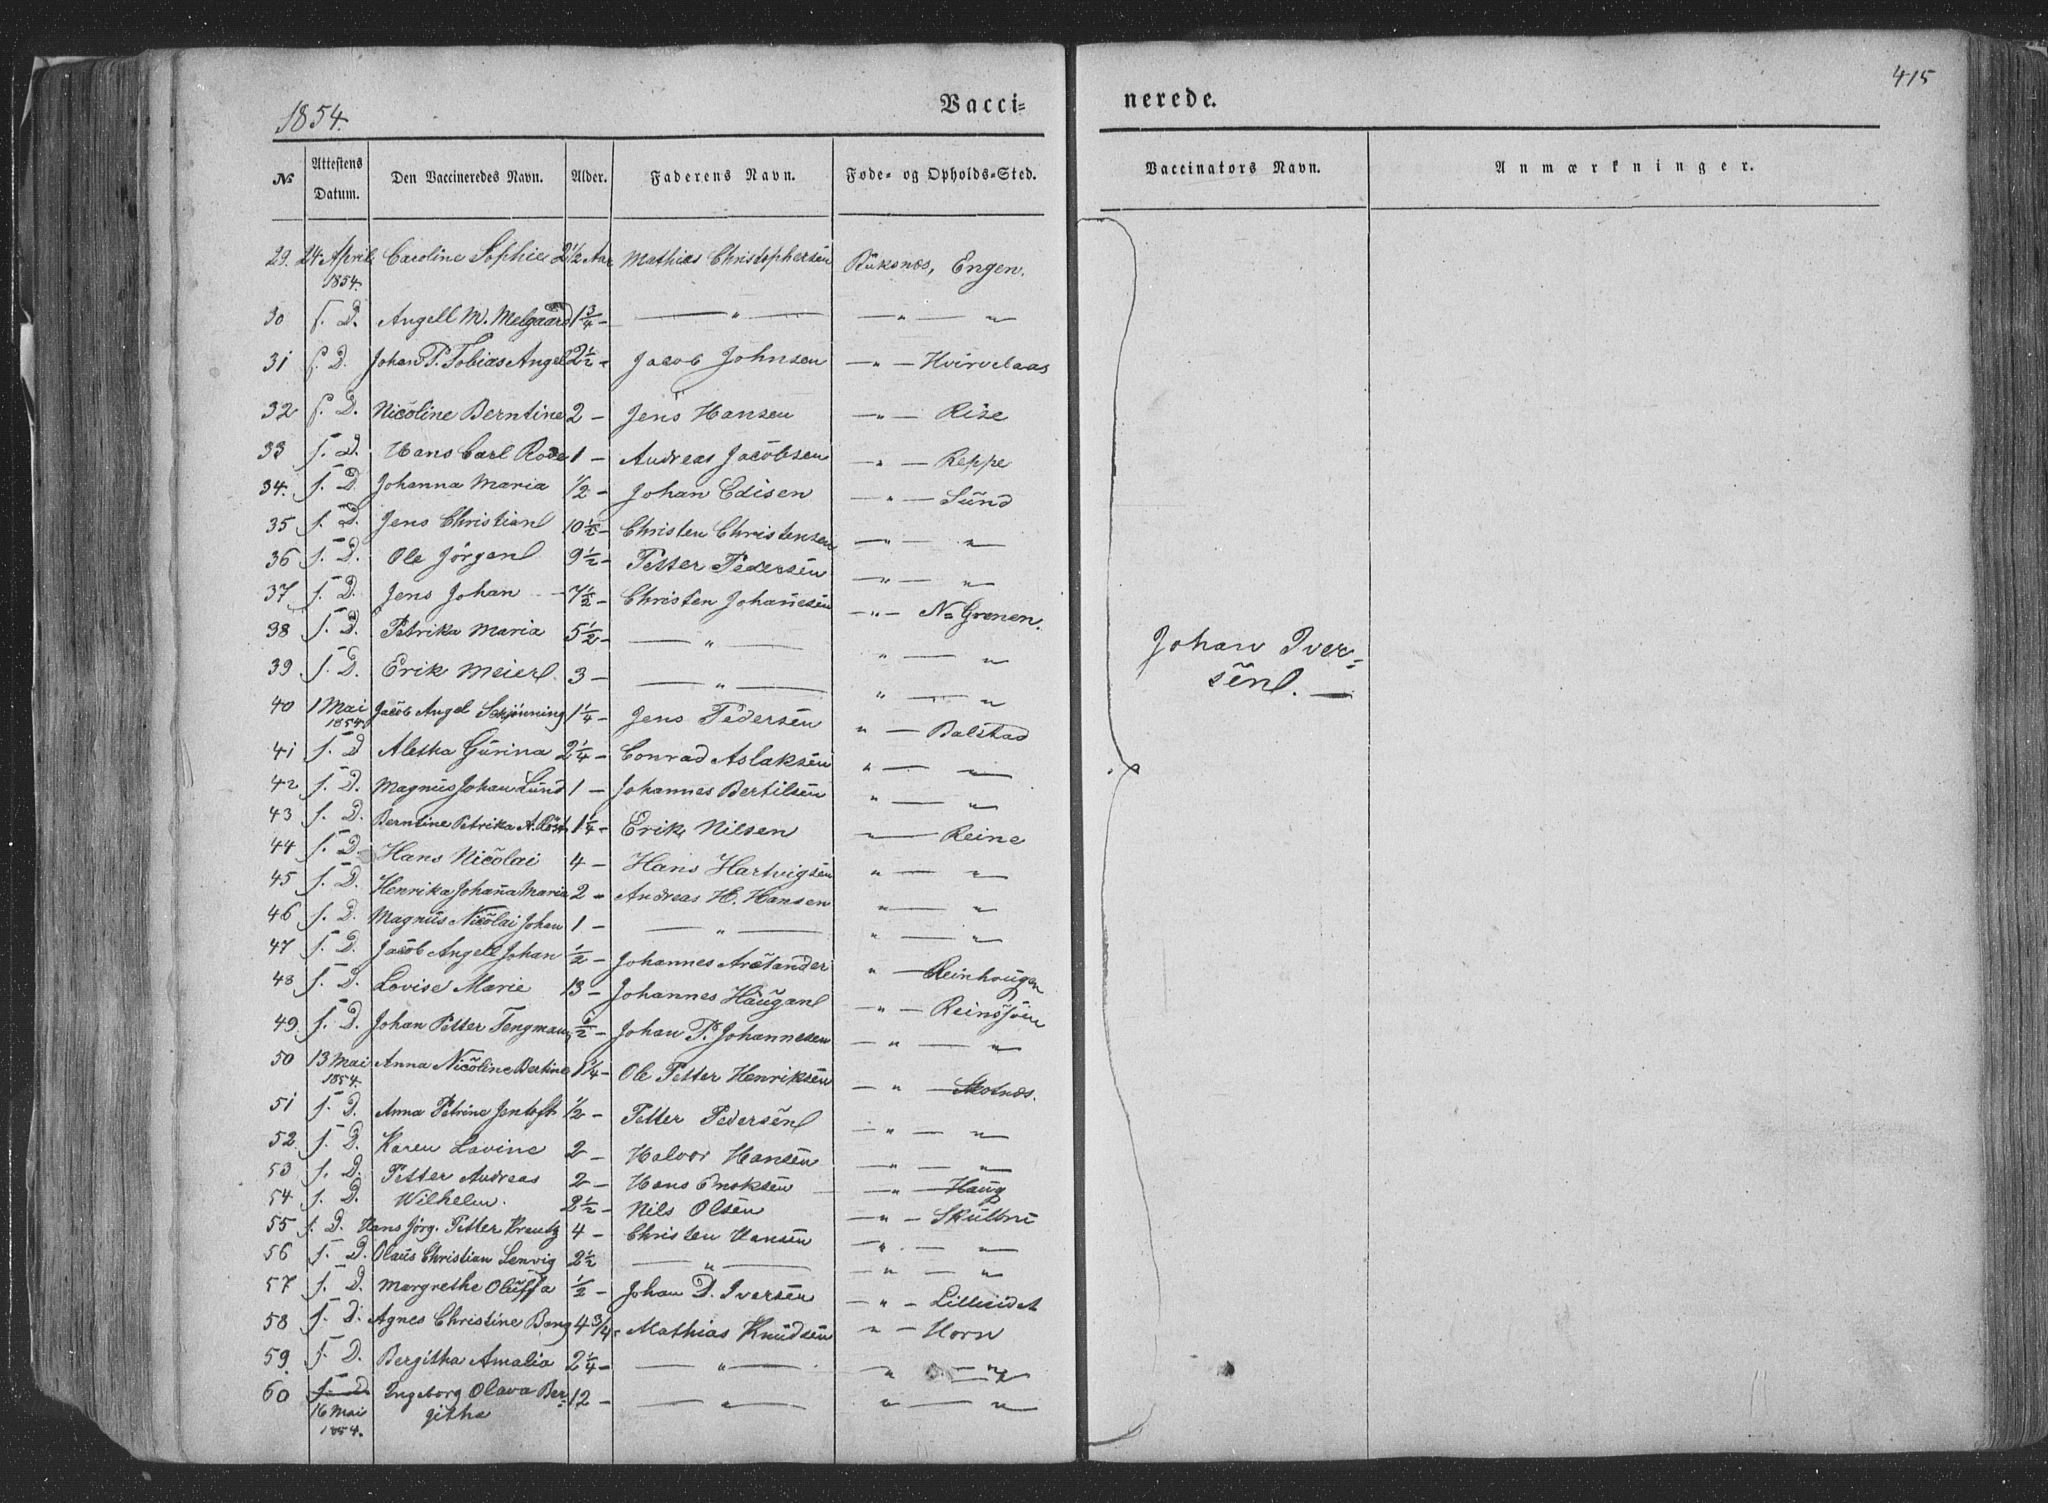 415
1854.
Vacci=
nerede.
No Attestens Datum. Den Vaccineredes Navn. Alder. Faderens Navn. Føde- og Opholds-Sted. Vaccinators Navn. Anmærkninger.
29. 24 April 1854. Caroline Sophie 2½ Aar Mathias Christophersen Buksnæs, Engen.
30 s. D. Angell M. Melgaard 1¾ - — " — — " — "
31 s. D. Johan P. Tobias Angel 2½ - Jacob Johnsen — " — Hvirvelaas
32 s. D. Nicoline Berntine 2 - Jens Hansen — " — Rise
33 s. D. Hans Carl Rode 1 - Andreas Jacobsen — " — Reppe
34. s. D. Johanna Maria ½ - Johan Edisen — " — Sund
35 s. D. Jens Christian 10½ - Christen Christensen — " — "
36 s. D. Ole Jørgen 9½ - Petter Pedersen — " — "
37 s. D. Jens Johan 7½ - Christen Johanesen — " — N= Grenen.
38 s. D. Petrika Maria 5½ - — " — " — "
39 s. D. Erik Meier 3 - — " — " — "
40 1 Mai 1854. Jacob Angel Skjønning 1¼ - Jens Pedersen " — Balstad
41 s. D Aletha Gurina 2¼ - Conrad Aslaksen " — "
42 s. D. Magnus Johan Lund 1 - Johannes Bertilsen " — "
43 s. D. Berntine Petrika A. Röst 1¼ - Erik Nilsen " — Reine
44 s. D. Hans Nicolai 4 - Hans Hartvigsen " — "
45 s. D. Henrika Johana Maria 2 - Andreas H. Hansen " — "
46 s. D. Magnus Nicolai Johan 1 - — " — " — "
47 s. D. Jacob Angell Johan ½ - Johannes Arctander " — Reinhougen
48 s. D. Lovise Marie 13 - Johannes Haugan — " — Reinsjöen
49. s. D. Johan Petter Tengman ½ - Johan P. Johannesen — " — "
50 13 Mai 1854. Anna Nicoline Bertine 1¼ - Ole Petter Henriksen — " — Skotnæs.
51 s. D. Anna Petrine Jentoft ½ - Petter Pedersen — " — "
52 s. D. Karen Lovine 2 - Halvor Hansen — " — "
53 s. D. Petter Andreas 2 - Hans Enoksen — " — Haug
54 s. D. Wilhelm. 2½ - Nils Olsen — " — Skullbru
55 s. D. Hans Jörg. Petter Kreutz 4 - Christen Hansen — " — "
56 s. D. Olaus Christian Lenvig 2½ — " — — " — "
57 s. D. Margrethe Oluffa ½ - Johan D. Iversen — " — Lilleeidet
58 s. D. Agnes Christine Berg 4¾ - Mathias Knudsen " — Horn
59. s. D. Bergitha Amalia 2¼ - — " — " — "
60 s. D 16 Mai 1854. Ingeborg Olava Ber=
githa 12 - — " — " — "
Johan Iver=
sen. —